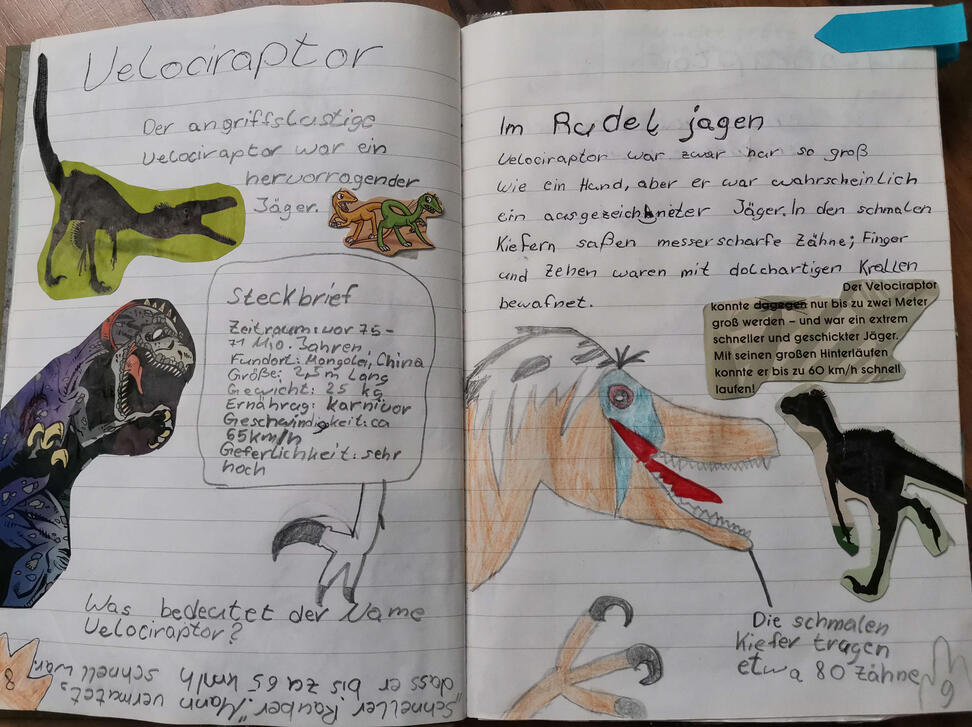 Velociraptor
Der angriffslustige
Velociraptor war ein
hervorragender
Jäger.
Steckbrief
Zeitraum: vor 75-
71 Mio. Jahren
Fundort: Mongolei, China
Größe: 2,5 m lang
Gewicht: 25 kg
Ernährag: Karnivor
Geschwindigkeit: ca
65km/h
Geferlichkeit: sehr
hoch
Was bedeutet der Name
Velociraptor?
"Schneller Räuber." Mann vermutet,
dass er bis za 65 km/h
schnell war.
8
Im Rudel jagen
Velociraptor war zwar nur so groß
wie ein Hund, aber er war wahrscheinlich
ein ausgezeichneter Jäger. In den schmalen
Kiefern saßen messerscharfe Zähne; Finger
und Zehen waren mit dolchartigen Krallen
bewafnet.
Der Velociraptor
konnte dagegen nur bis zu zwei Meter
groß werden – und war ein extrem
schneller und geschickter Jäger.
Mit seinen großen Hinterläufen
konnte er bis zu 60 km/h schnell
laufen!
Die schmalen
Kiefer tragen
etwa 80 Zähne
9